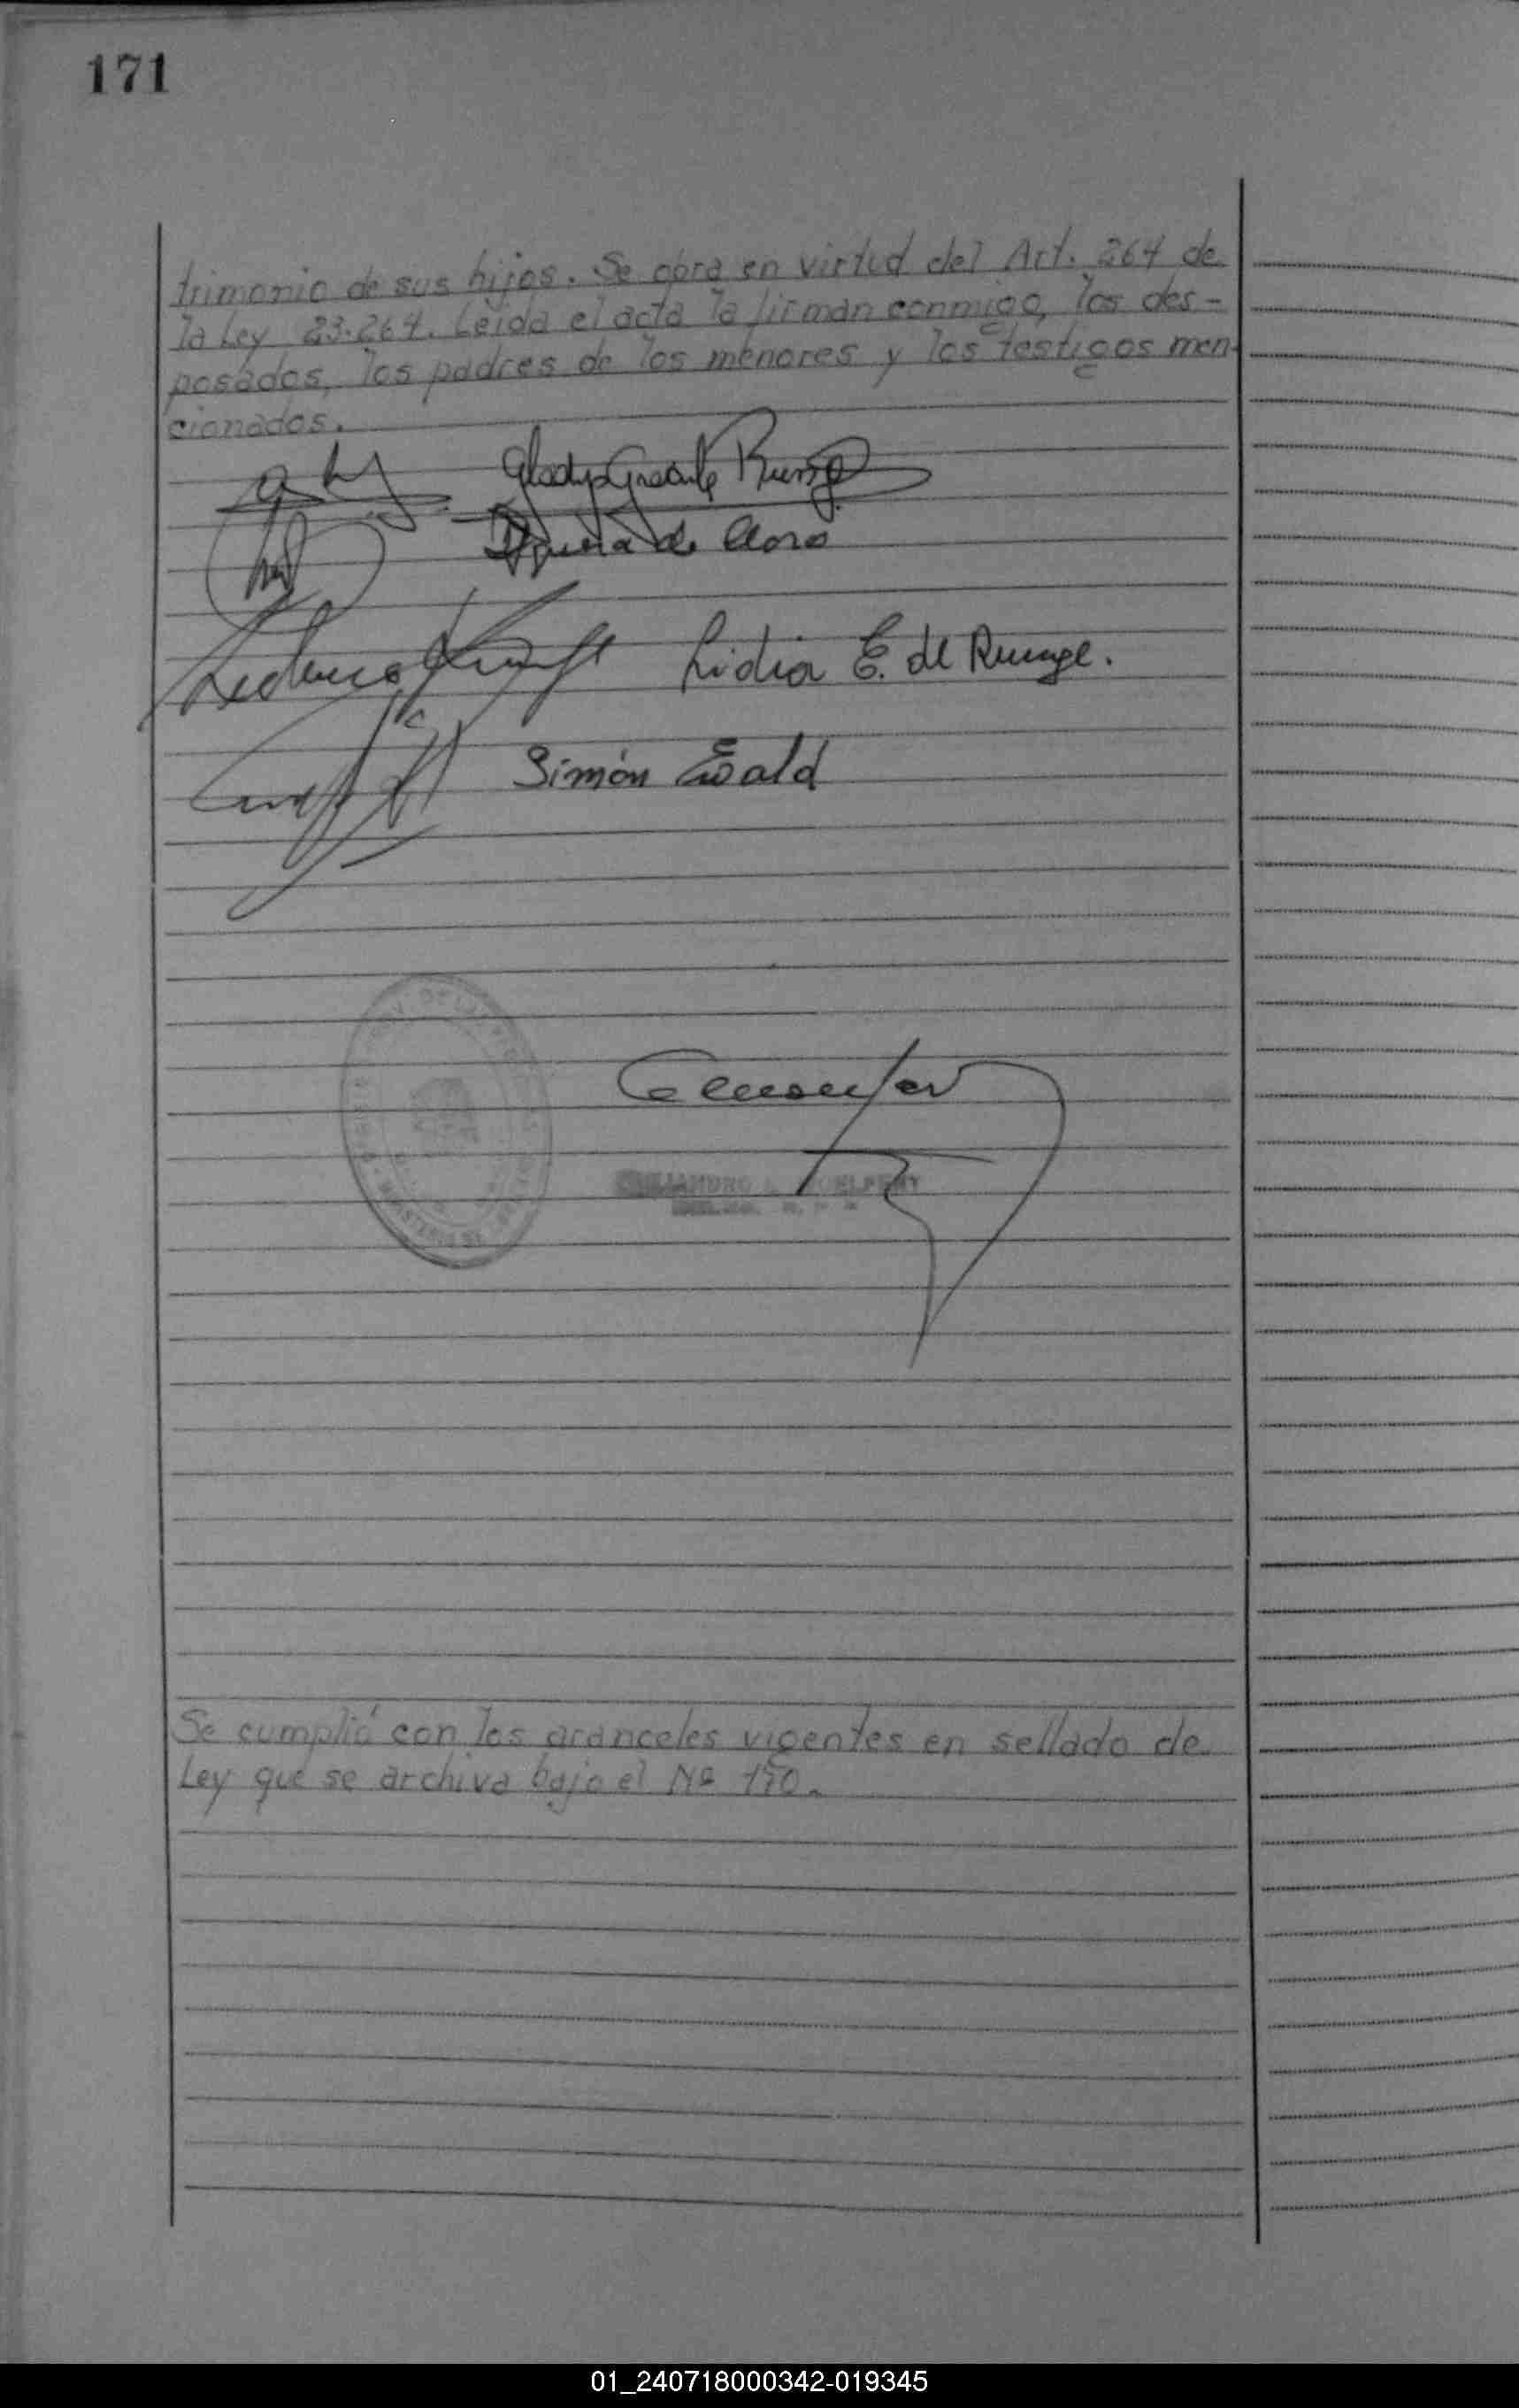 171
trimonio de sus hijos. Se obra en virtud del Art. 264 de
la Ley 23.264. Leída el acta la firman conmigo, los des-
posados, los padres de los menores y los testigos men-
cionados.
Gladys Graciela Runge
de Claro
Federico Runge Lidia E. de Runge.
Simón Ewald
Se cumplió con los aranceles vigentes en sellado de
Ley que se archiva bajo el Nº 170.
01_240718000342-019345